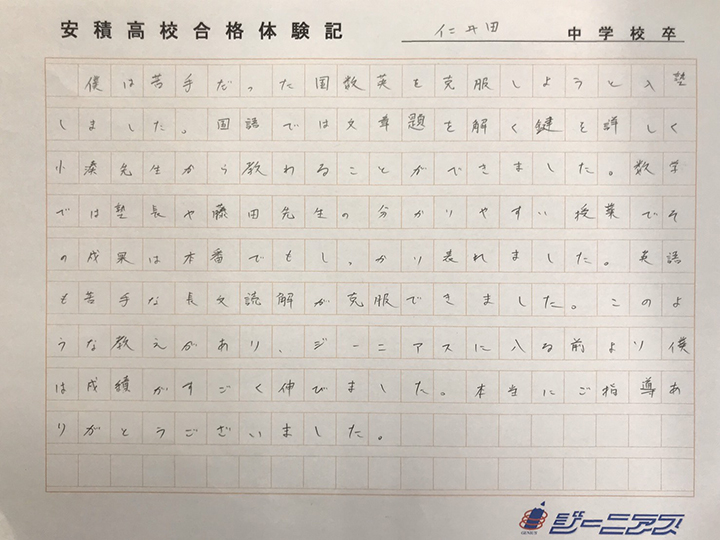 安積高校合格体験記
仁井田 中学校卒
僕は苦手だった国数英を克服しようと入塾
しました。国語では文章題を解く鍵を詳しく
小湊先生から教わることができました。数学
では塾長や藤田先生の分かりやすい授業でそ
の成果は本番でもしっかり表れました。英語
も苦手な長文読解が克服できました。このよ
うな教えがあり、ジーニアスに入る前より僕
は成績がすごく伸びました。本当にご指導あ
りがとうございました。
GENIUS ジーニアス